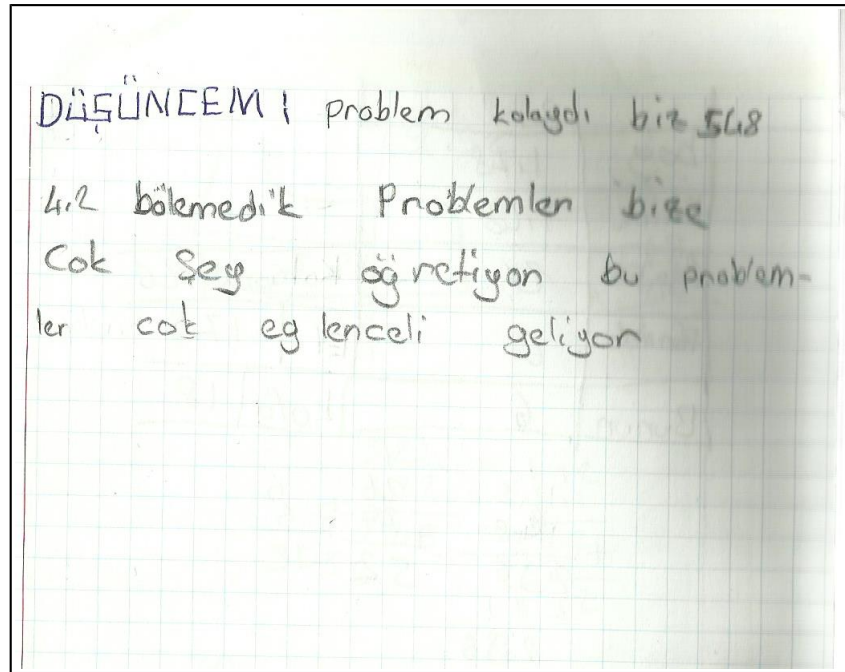 DÜŞÜNCEM : problem kolaydı biz 548
4.2 bölemedik Problemlen bize
Cok Şey öğretiyon bu problem-
ler cok eg lenceli geliyon